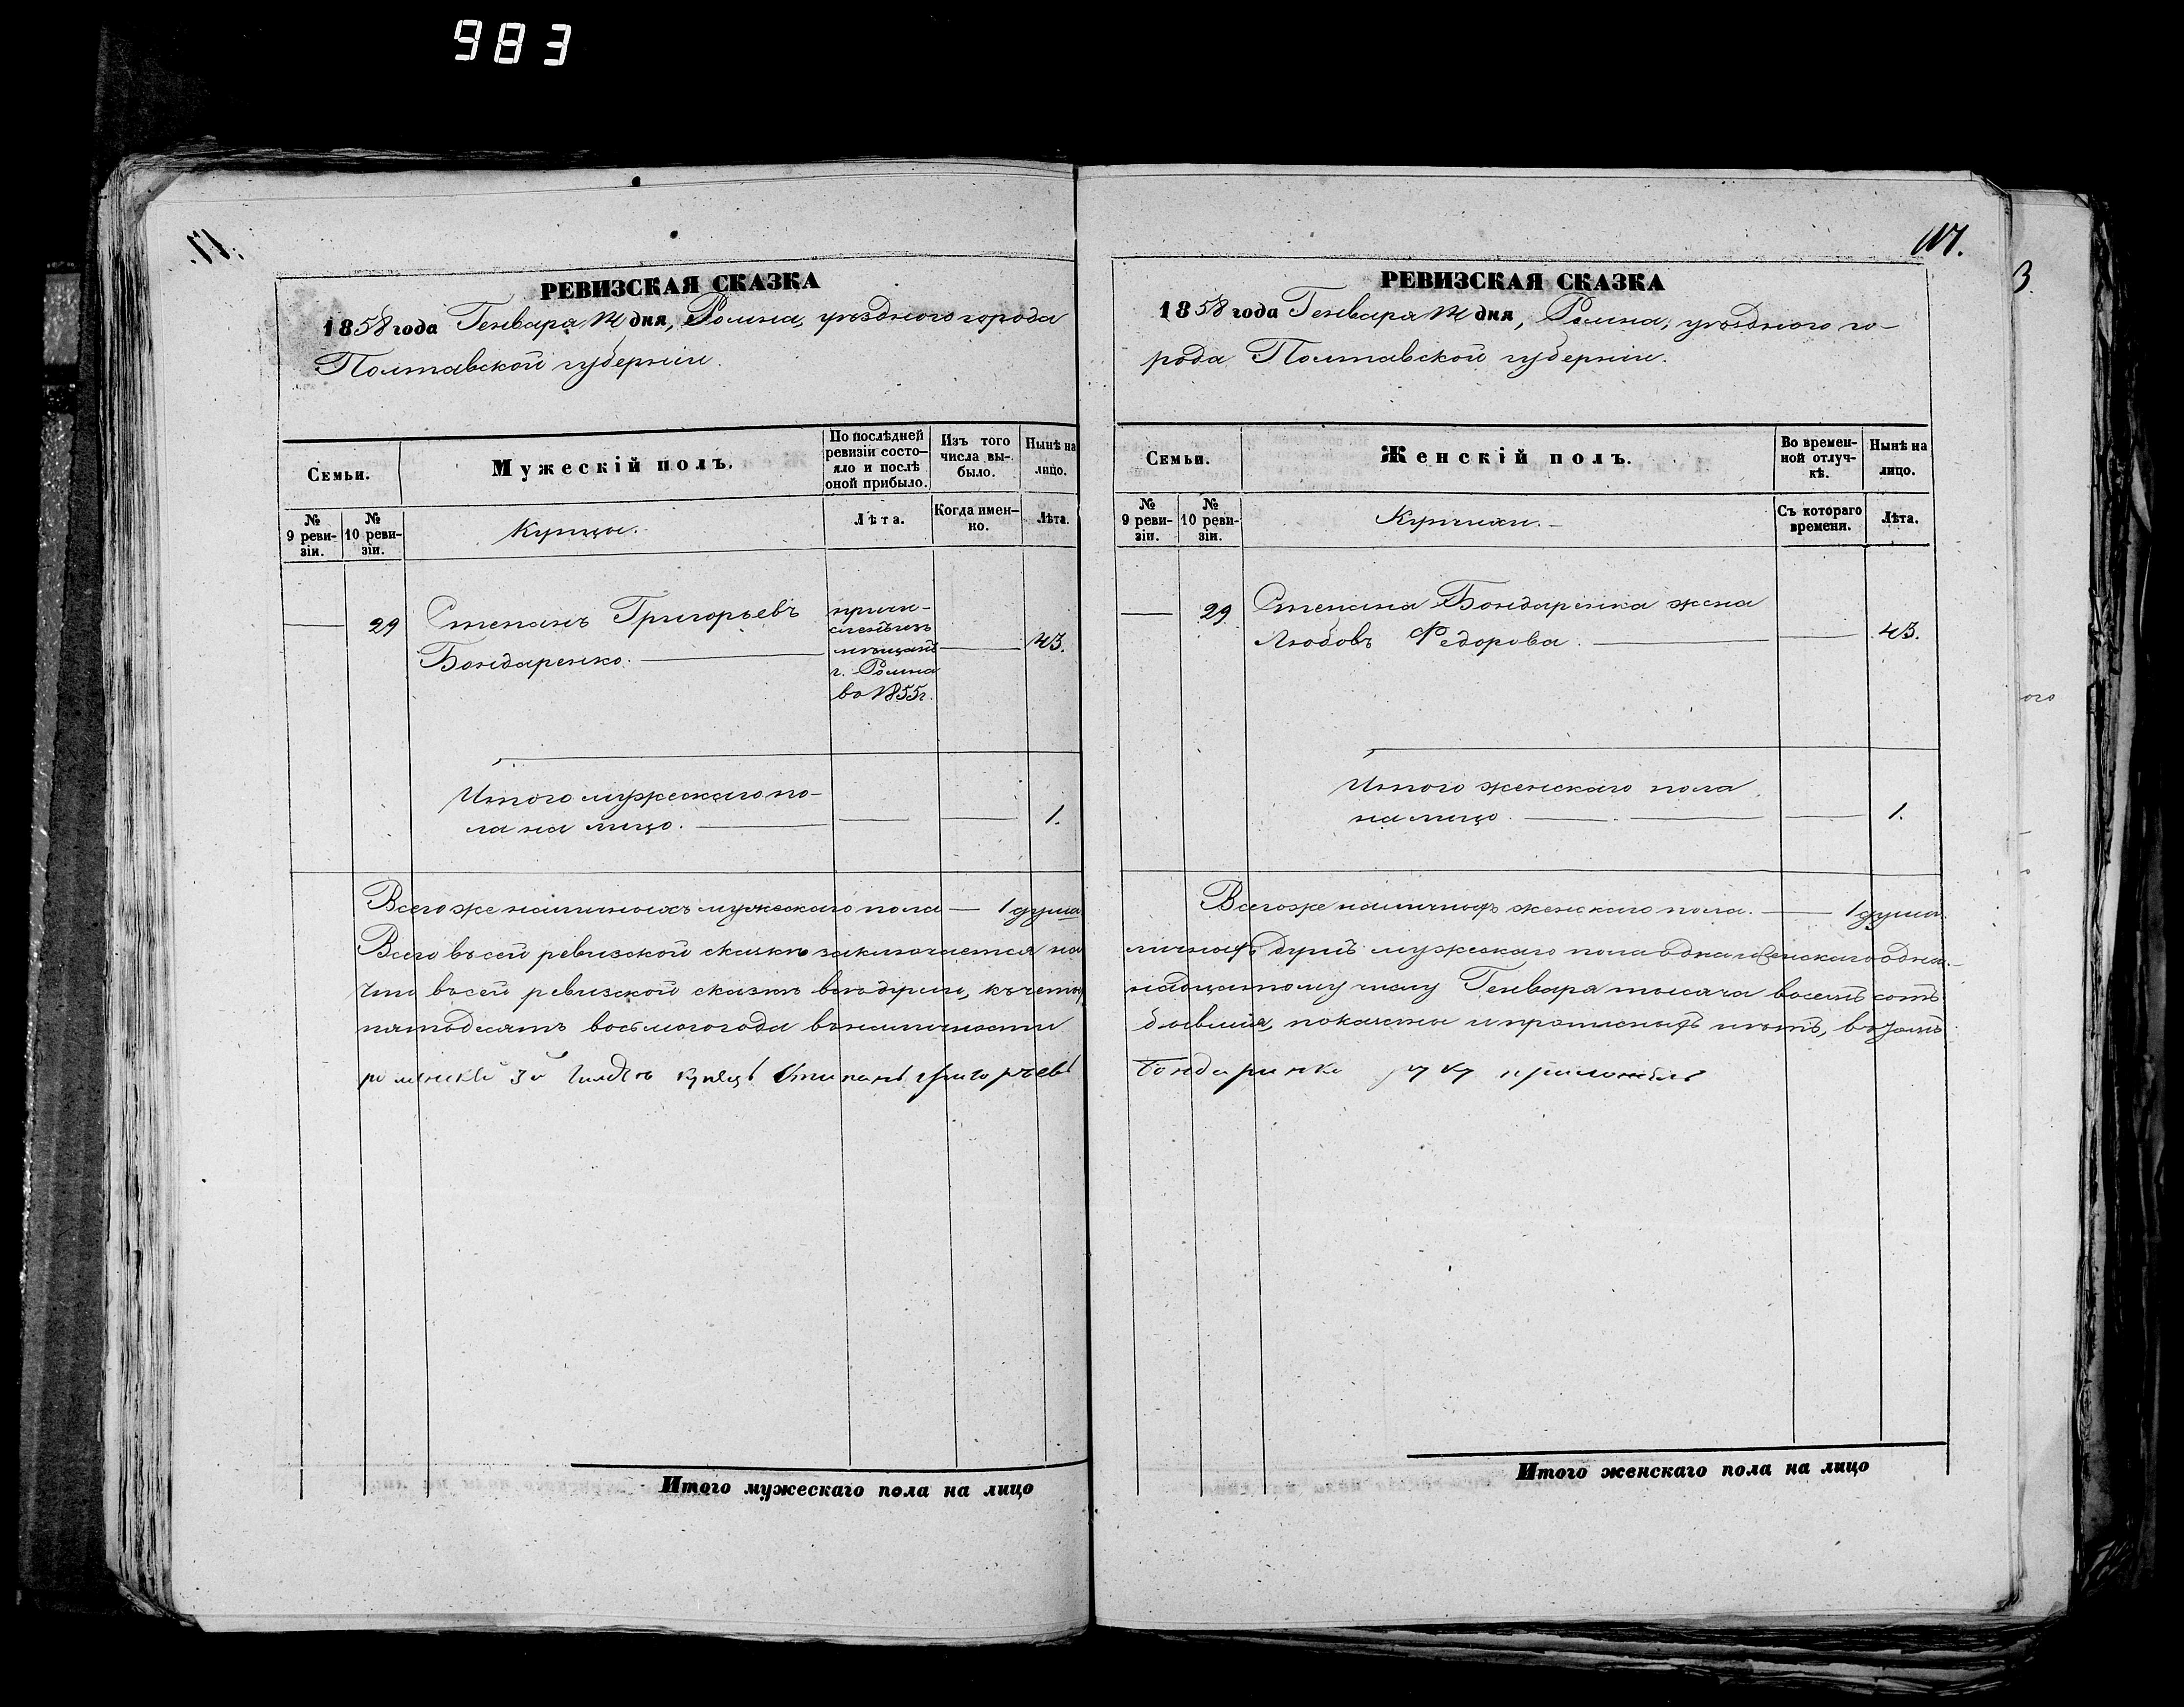 983
РЕВИЗСКАЯ СКАЗКА
1858 года Генваря 14 дня, Ромна, уѣзднаго города
Полтавской губерніи.
Семьи.
Мужескій полъ.
По послѣдней ревизіи состо-
яло и послѣ
оной прибыло.
Изъ того
числа вы-
было.
Нынѣ на
лицо.
№
9 реви-
зіи.
№
10 реви-
зіи.
Купцы.
Лѣта.
Когда имен-
но.
Лѣта.
29
Степанъ Григорьевъ
Бондаренко.
причи-
сленъ изъ
мѣщанъ
г. Ромна
въ 1855 г.
43.
Итого мужескаго по-
ла на лицо.
1.
Всего же наличныхъ мужескаго пола — 1 душа
Всего въ сей ревизской сказкѣ заключается на
Что въ сей ревизской сказкѣ всѣ души, къ четыр
пятьдесятъ восьмого года въ наличности
роменский 3й гилдіи купецъ Степанъ Григорьевъ
Итого мужескаго пола на лицо
РЕВИЗСКАЯ СКАЗКА
1858 года Генваря 14 дня, Ромна, уѣзднаго го-
рода Полтавской губерніи.
Семьи.
Женскій полъ.
Во времен-
ной отлуч-
кѣ.
Нынѣ на
лицо.
№
9 реви-
зіи.
№
10 реви-
зіи.
Купчихи.
Съ котораго
времени.
Лѣта.
29
Степана Бондаренка жена
Любовь Федорова.
43.
Итого женскаго пола
на лицо
1.
Всего же наличныхъ женскаго пола. — 1 душа.
личныхъ душъ мужескаго пола одна и женскаго одна.
надцатому числу Генваря тысяча восемь сотъ
бывшія, показаны и прописныхъ нѣтъ, въ томъ
Бондаренко руку приложилъ
Итого женскаго пола на лицо
3.
ого